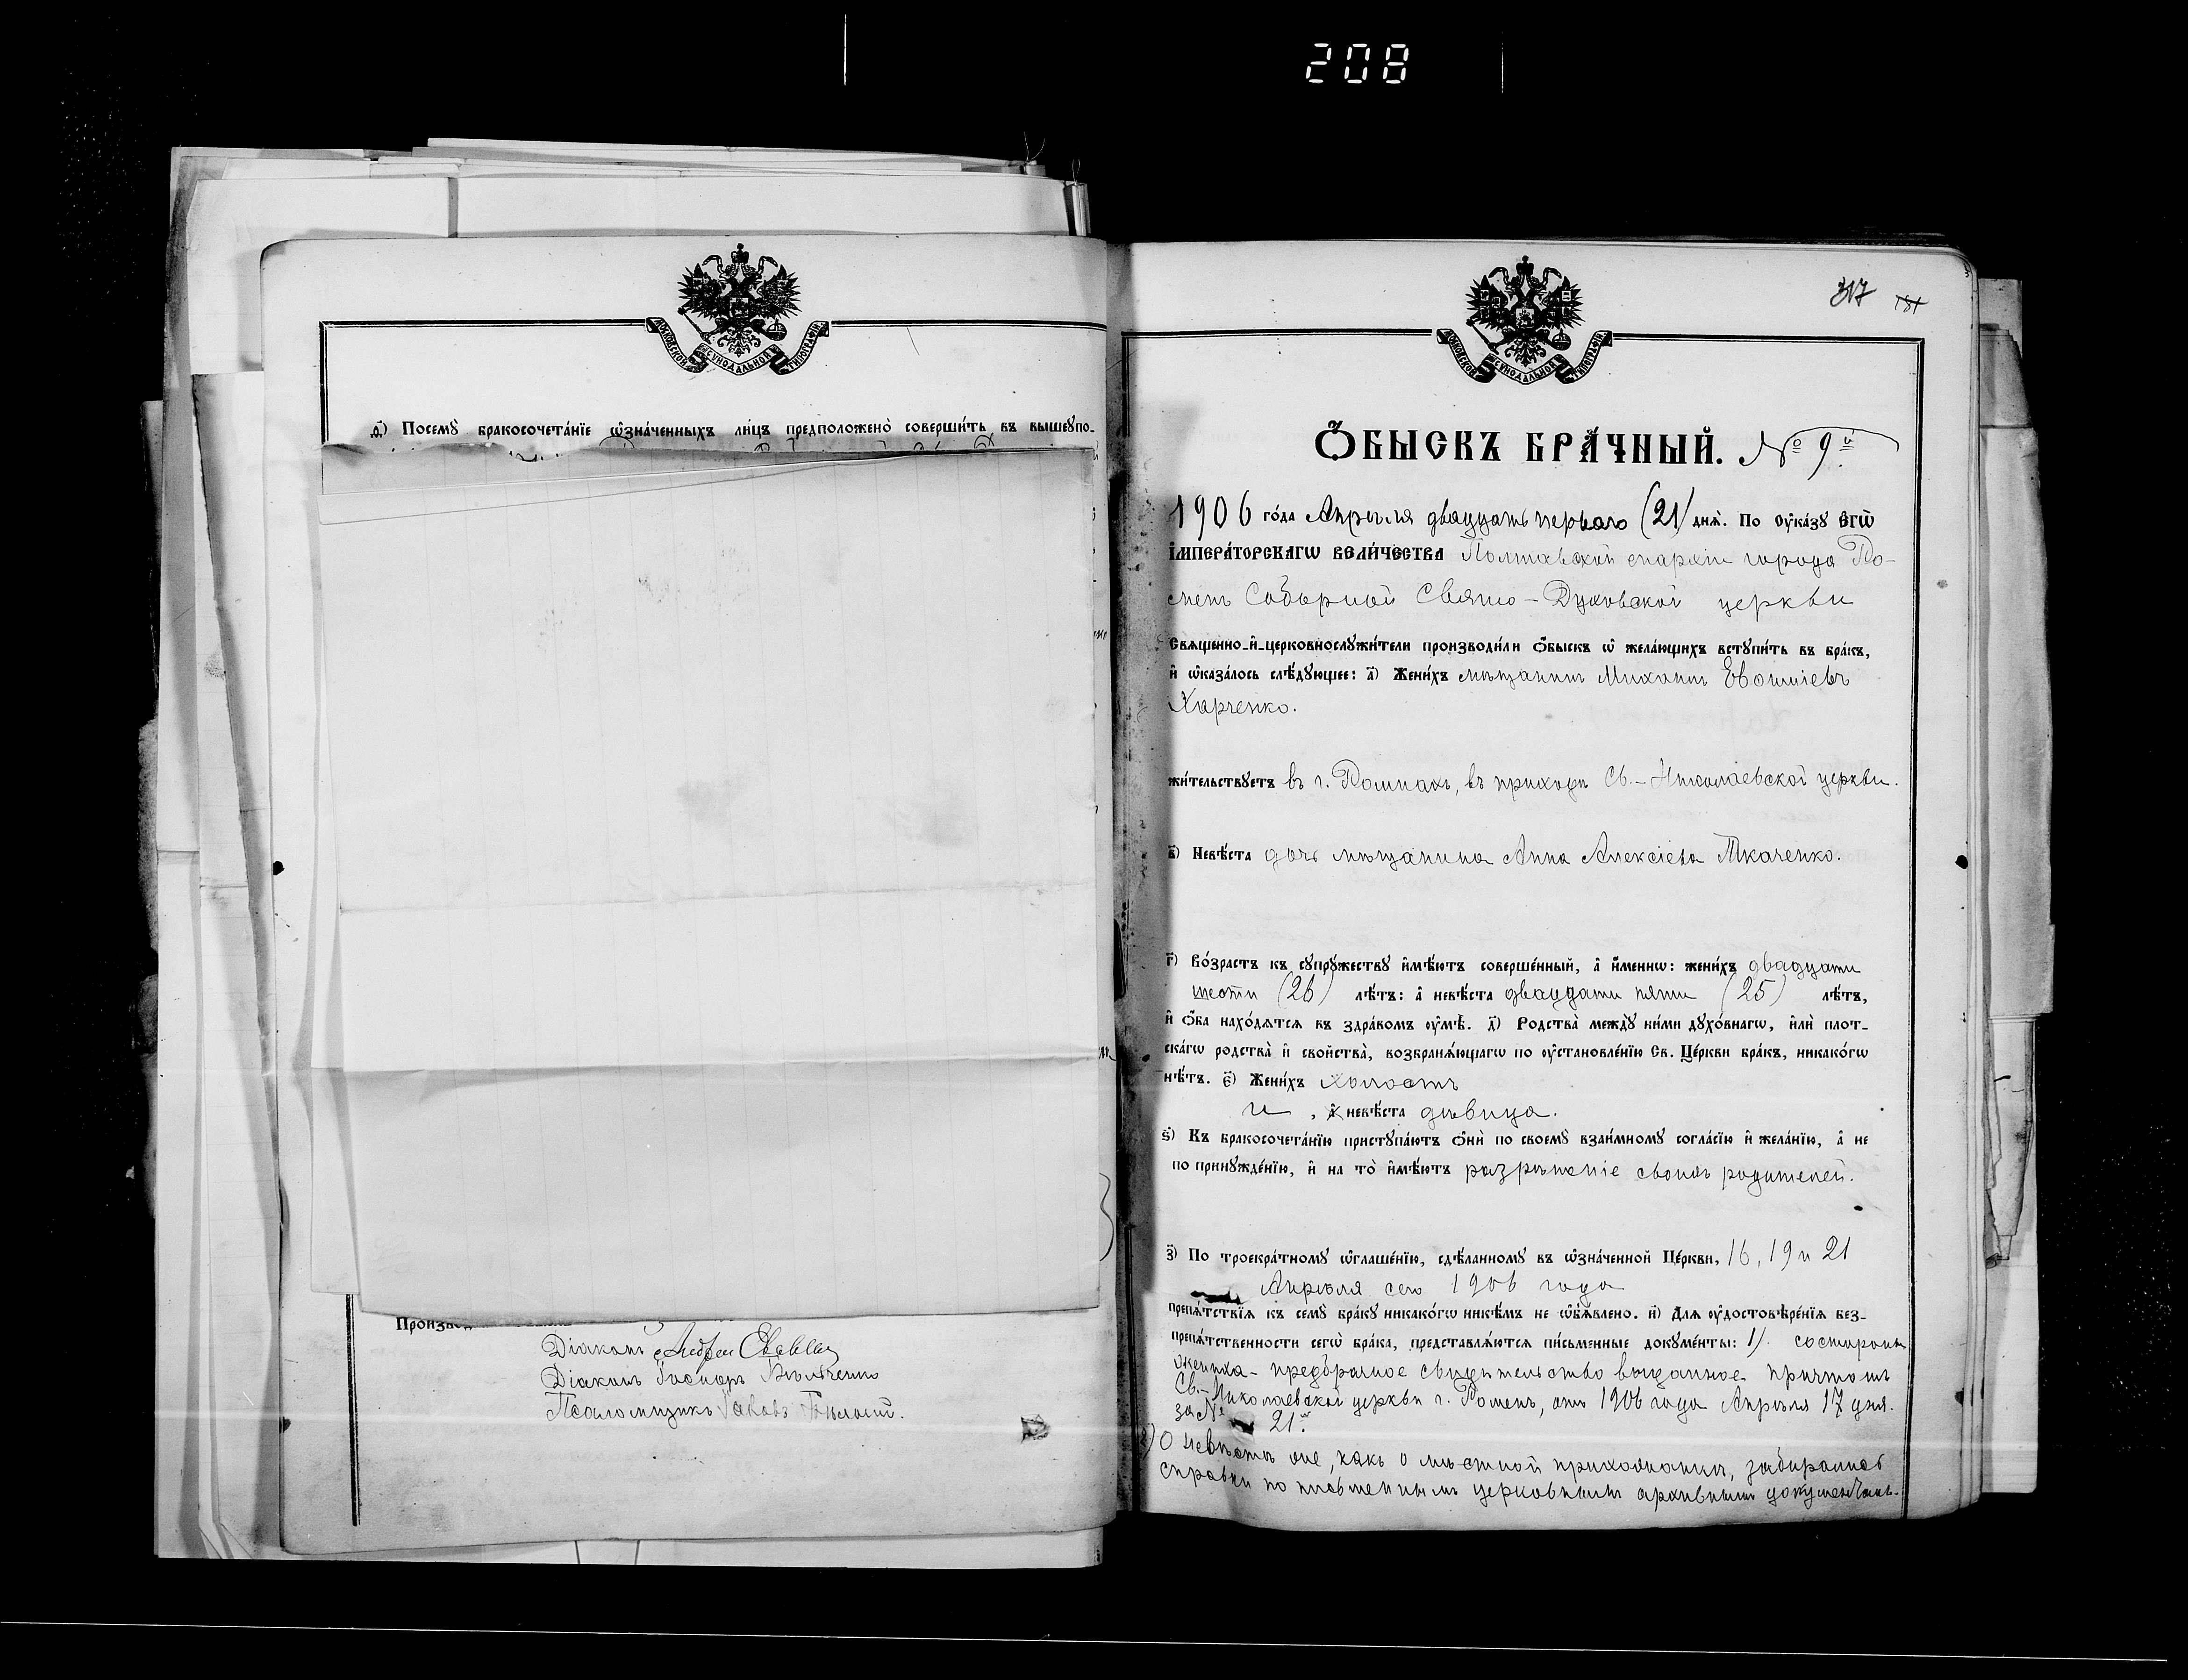 208
МОСКОВСКОЙ СѴНОДАЛЬНОЙ ТИПОГРАФІИ
д҃) Посемꙋ̀ бракосочета́нїе ѡ҆зна́ченныхъ ли́цъ предположено̀ соверши́ть въ вышеꙋпо-
Производ
Діаконъ Андрей
Діаконъ
Псаломщикъ Іаковъ
317 181
МОСКОВСКОЙ СѴНОДАЛЬНОЙ ТИПОГРАФІИ
Ѻ҆БЫСКЪ БРА́ЧНЫЙ. № 9й
1906 го́да Апрѣля двадцать перваго (21) днѧ̀. По ᲂу҆ка́зꙋ Є҆ГѠ̀
І҆МПЕРА́ТОРСКАГѠ ВЕЛИ́ЧЕСТВА Полтавской епархіи города Ро-
менъ Соборной Свято-Духовской церкви
Свѧще́нно-и҆-церковнослꙋжи́тели производи́ли ѻ҆́быскъ ѡ҆ жела́ющихъ встꙋпи́ть въ бра́къ,
и҆ ѡ҆каза́лось слѣ́дꙋющее: а҃) Жени́хъ мѣщанинъ Михаилъ Евфиміевъ
Харченко.
жи́тельствꙋетъ въ г. Ромнахъ, въ приходѣ Св.-Николаевской церкви.
в҃) Невѣ́ста дочь мѣщанина Анна Алексіева Ткаченко.
г҃) Во́зрастъ къ сꙋпрꙋ́жествꙋ и҆мѣ́ютъ соверше́нный, а҆ и҆́меннѡ: жени́хъ двадцати
шести (26) лѣ́тъ: а҆ невѣ́ста двадцати пяти (25) лѣ́тъ,
и҆ ѻ҆́ба нахо́дѧтсѧ въ здра́вомъ ᲂу҆мѣ̀. д҃) Родства̀ междꙋ̀ ни́ми дꙋхо́внагѡ, и҆лѝ плот-
ска́гѡ родства̀ и҆ свойства̀, возбранѧ́ющагѡ по ᲂу҆становле́нїю Св. Це́ркви бра́къ, никако́гѡ
нѣ́тъ. є҃) Жени́хъ холостъ
и , а҆ невѣ́ста дѣвица.
ѕ҃) Къ бракосочета́нїю пристꙋпа́ютъ ѻ҆нѝ по своемꙋ̀ взаи́мномꙋ согла́сїю и҆ жела́нїю, а҆ не
по принꙋжде́нїю, и҆ на то̀ и҆мѣ́ютъ разрѣшеніе своихъ родителей.
з҃) По троекра́тномꙋ ѡ҆глаше́нїю, сдѣ́ланномꙋ въ ѡ҆зна́ченной Це́ркви, 16, 19 и 21
Апрѣля сего 1906 года
препѧ́тствїѧ къ семꙋ̀ бра́кꙋ никако́гѡ никѣ́мъ не ѡ҆б̾ѧ́влено. и҃) Длѧ ᲂу҆достовѣре́нїѧ без-
препѧ́тственности сегѡ̀ бра́ка, представлѧ́ютсѧ пи́сьменные докꙋме́нты: 1) со стороны
жениха - предбрачное свидѣтельство выданное причтомъ
Св.-Николаевской церкви г. Роменъ, отъ 1906 года Апрѣля 17 дня.
за № 21.
2) О невѣстѣ же, какъ о мѣстной прихожанкѣ, забирались
справки по письменнымъ церковнымъ архивнымъ документамъ.